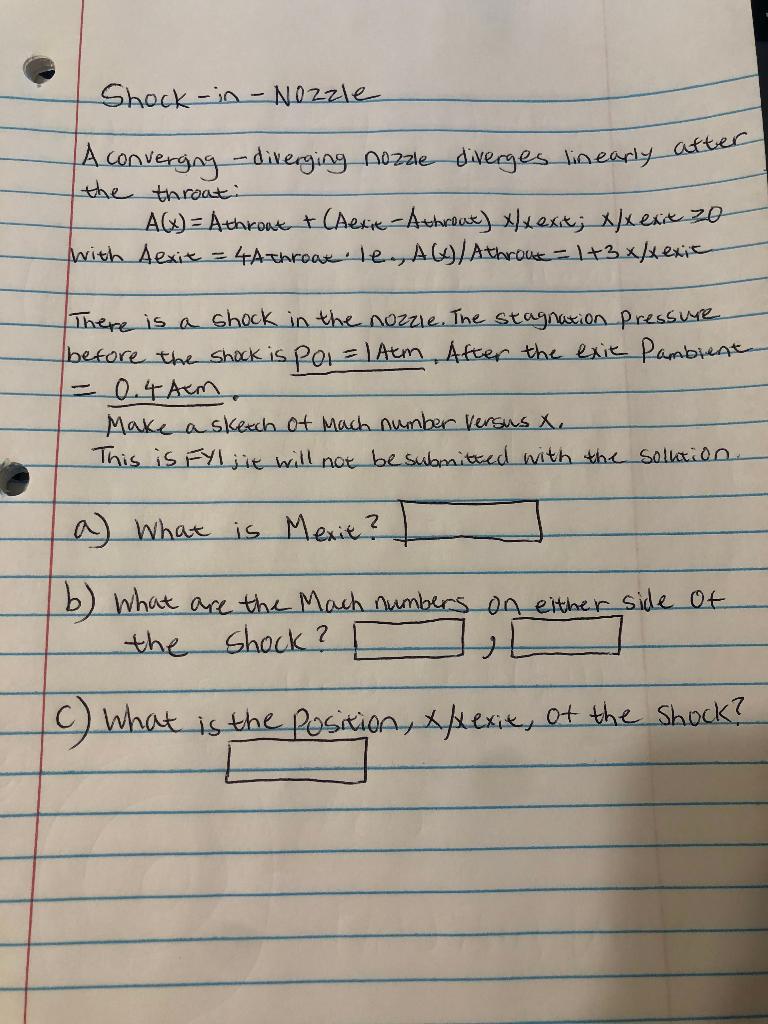 Shock-in-Nozzle
A convergng-diverging nozzle diverges linearly after
the throat:
A(x) = Athroat + (Aexit - Athroat) x/xexit; x/xexit ≥0
with Aexit = 4Athroat. Ie., A(x)/Athroat = 1+3 x/xexit
There is a shock in the nozzle. The stagnation pressure
before the shock is P01 = 1 Atm. After the exit Pambient
= 0.4 Atm.
Make a sketch of Mach number versus x.
This is FYI; it will not be submitted with the solution.
a) What is Mexit?
b) What are the Mach numbers on either side of
the shock? ,
c) What is the position, x/xexit, of the shock?